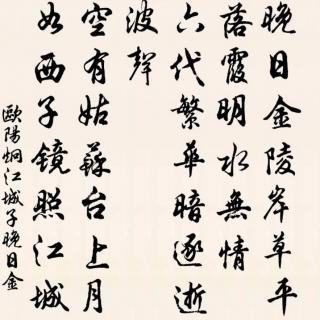 晚日金陵岸草平
落霞明水無情
六代繁華暗逐逝
波聲
空有姑蘇台上月
如西子鏡照江城
歐陽炯江城子晚日金